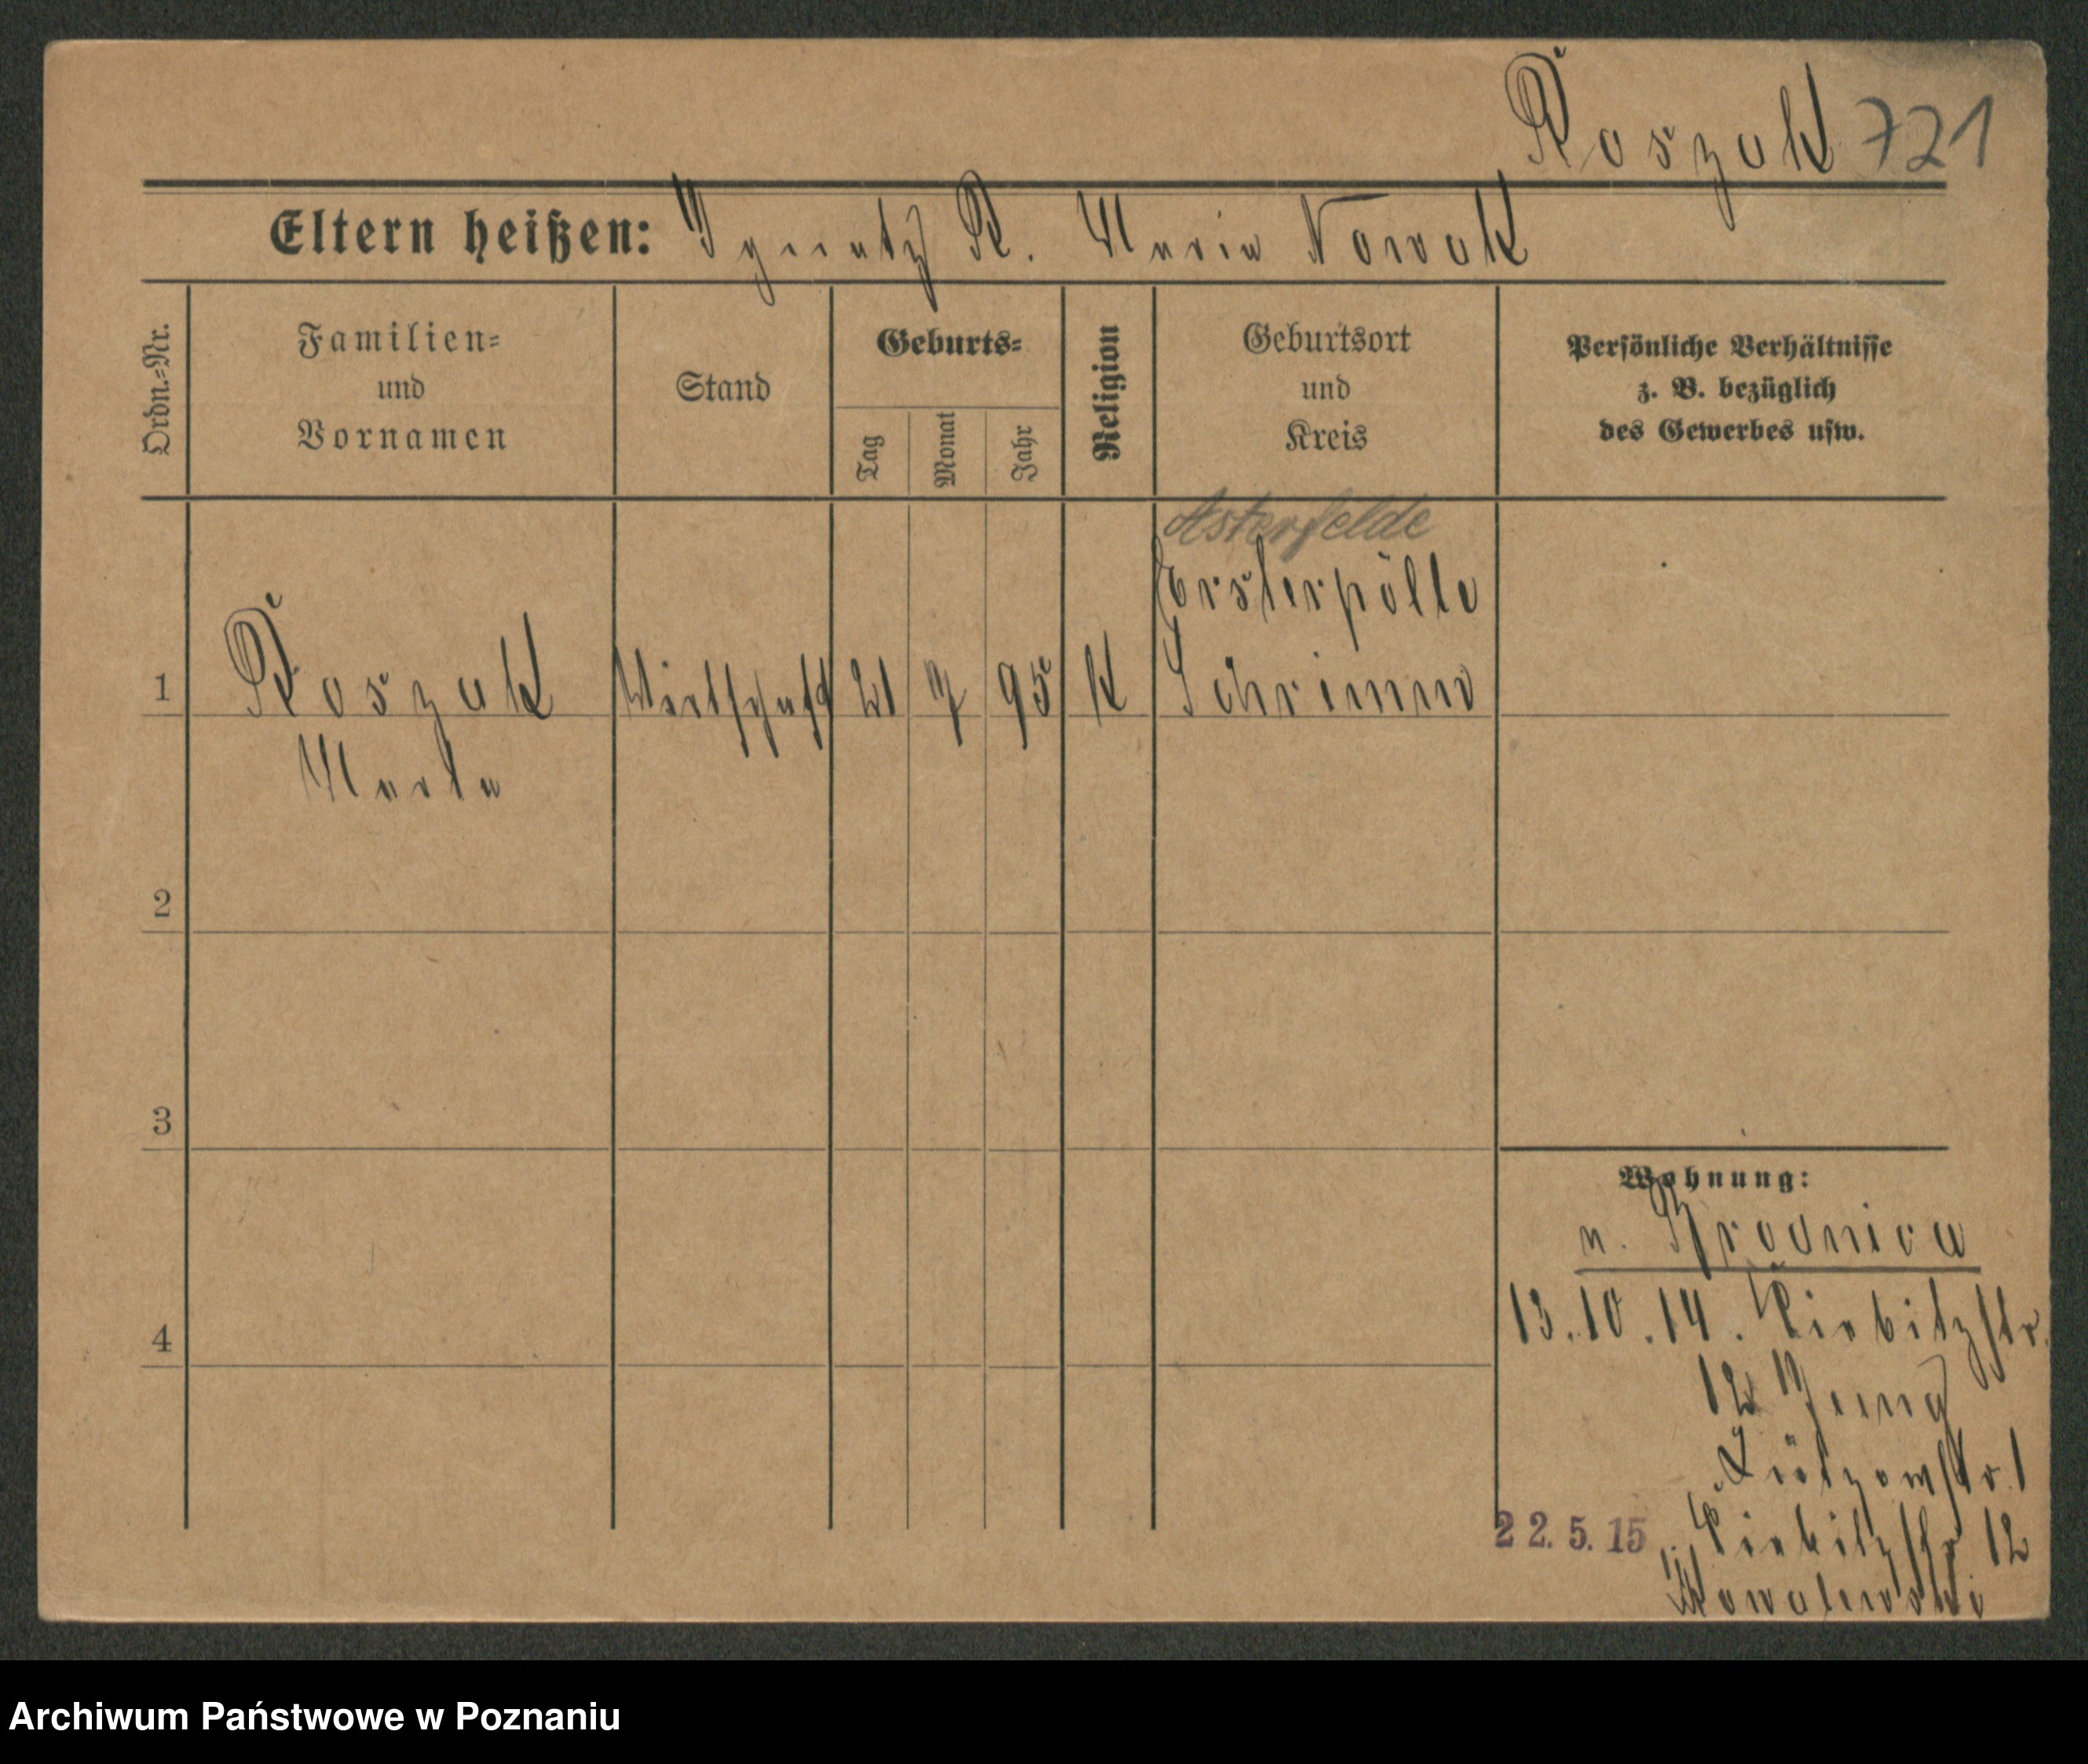 Roszak 721
Eltern heißen: Ignatz R. Maria Nowak
Ordn.=Nr.
Familien=
und
Vornamen
Stand
Geburts=
Tag
Monat
Jahr
Religion
Geburtsort
und
Kreis
Persönliche Verhältnisse
z. B. bezüglich
des Gewerbes usw.
Asterfelde
1 Roszak Wirtschaft 21 7 95 K Schrimm
Marta
2
3
4
Wohnung:
n. Brodnica
13.10.14. Kiebitzstr.
12 Jung
Lützowstr. 1
22.5.15 Kiebitzstr 12
Kowalewski
Archiwum Państwowe w Poznaniu